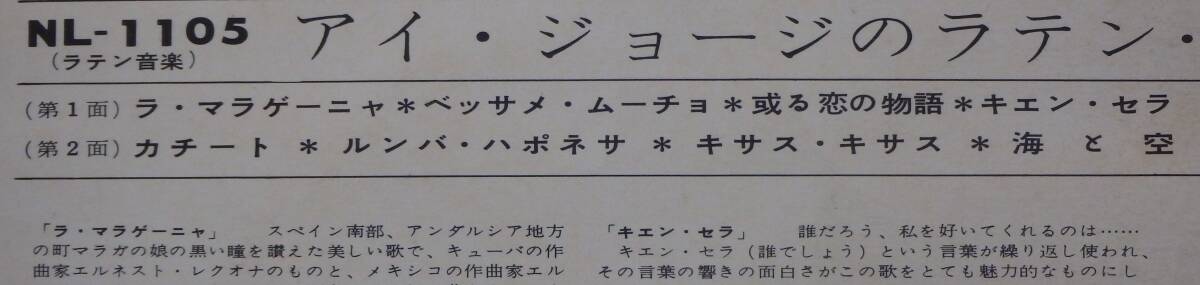 NL-1105
(ラテン音楽)
アイ・ジョージのラテン・
(第1面) ラ・マラゲーニャ＊ベッサメ・ムーチョ＊或る恋の物語＊キエン・セラ
(第2面) カチート ＊ ルンバ・ハポネサ ＊ キサス・キサス ＊ 海 と 空
「ラ・マラゲーニャ」 スペイン南部、アンダルシア地方
の町マラガの娘の黒い瞳を讃えた美しい歌で、キューバの作
曲家エルネスト・レクオナのものと、メキシコの作曲家エル
「キエン・セラ」 誰だろう、私を好いてくれるのは……
キエン・セラ（誰でしょう）という言葉が繰り返し使われ、
その言葉の響きの面白さがこの歌をとても魅力的なものにし